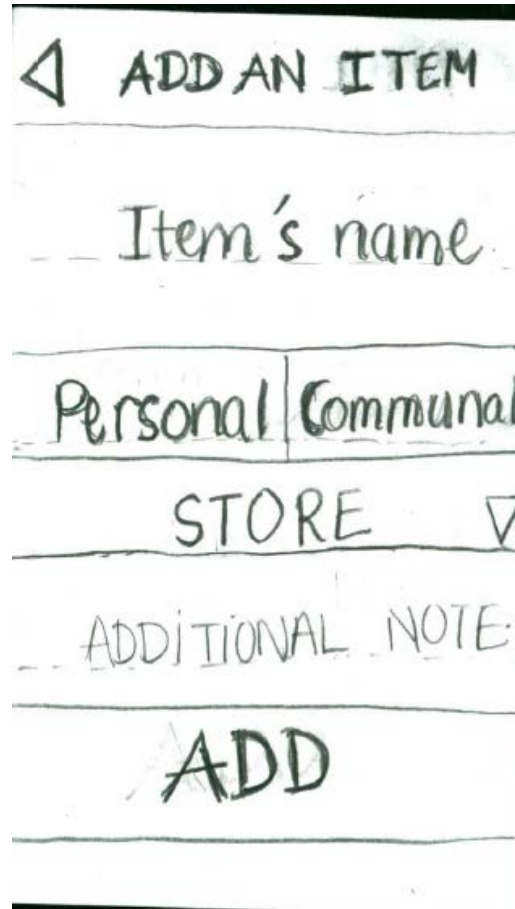 ADD AN ITEM
Item's name
Personal Communal
STORE
ADDITIONAL NOTE
ADD